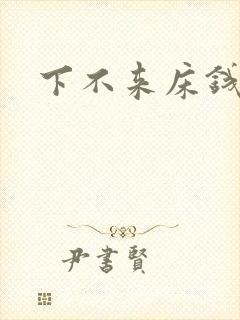 下不来床钱
尹書賢